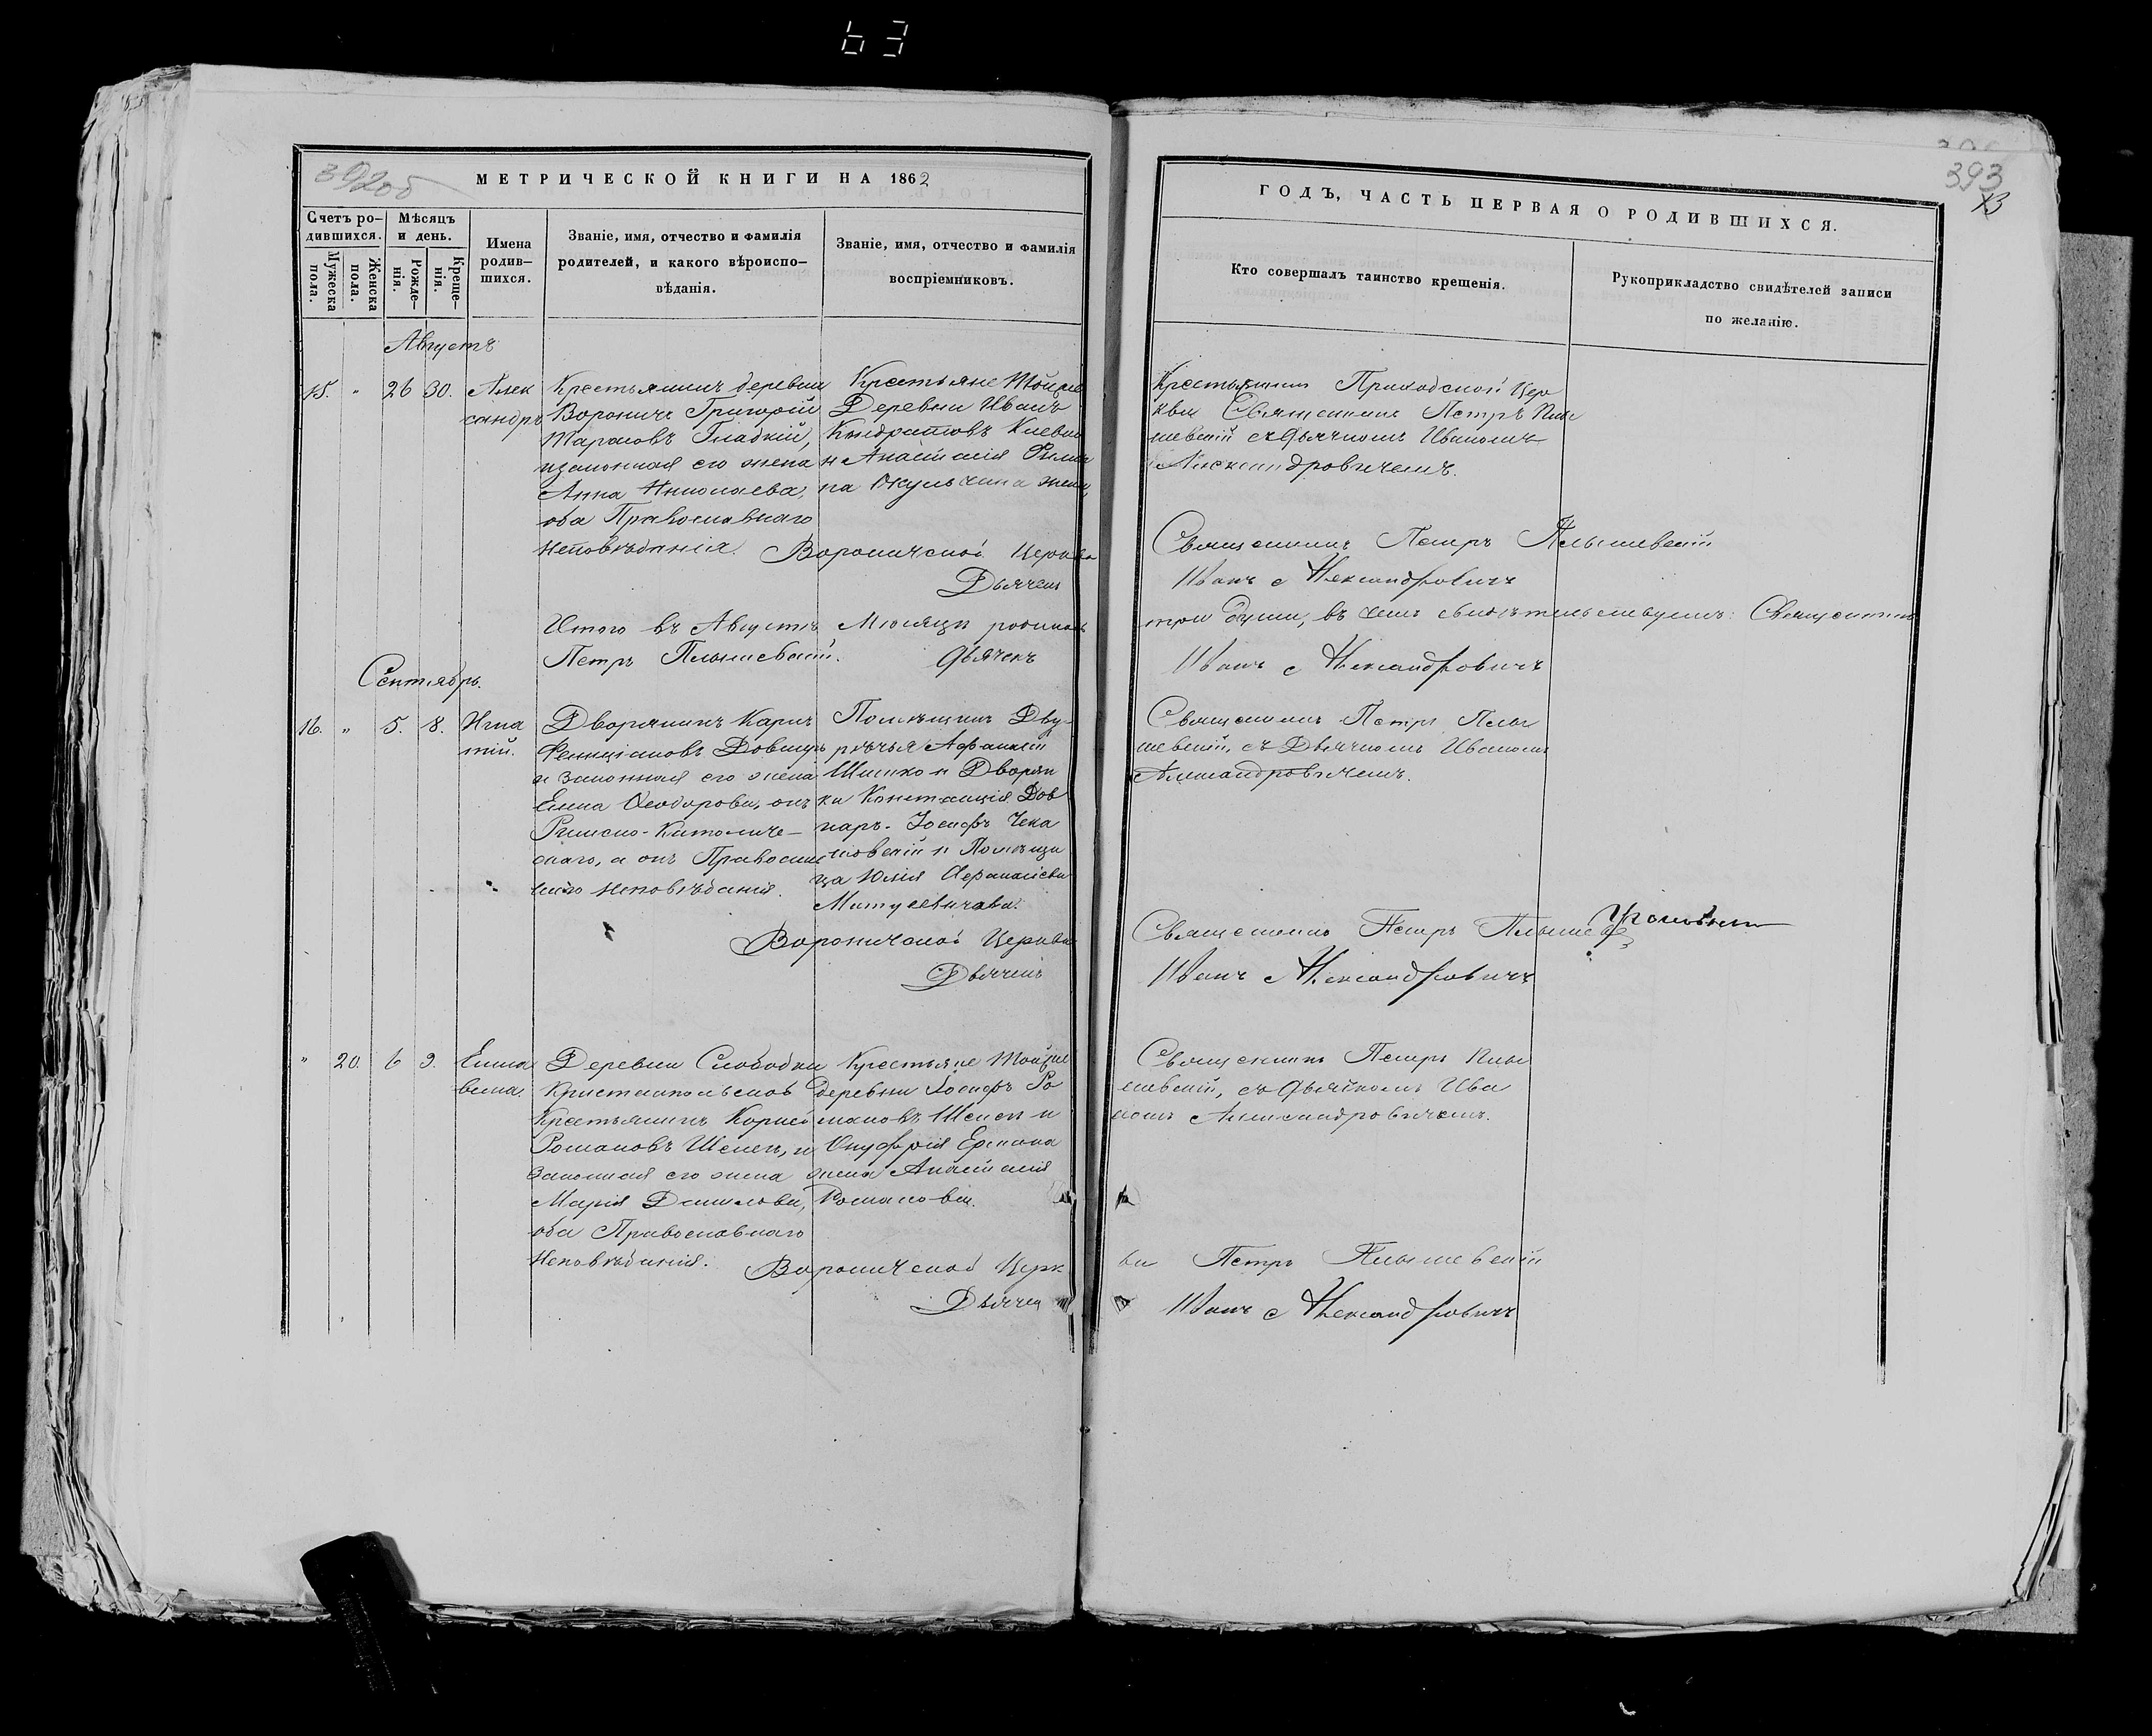 63
392об
МЕТРИЧЕСКОЙ КНИГИ НА 1862
Счетъ ро-
дившихся.
Мѣсяцъ
и день.
Мужеска
пола.
Женска
пола.
Рожде-
нія.
Креще-
нія.
Имена
родив-
шихся.
Званіе, имя, отчество и фамилія
родителей, и какого вѣроиспо-
вѣданія.
Званіе, имя, отчество и фамилія
воспріемниковъ.
Августъ
15. " 26 30. Алек
сандръ
Крестьянинъ деревни
Вороничъ Григорій
Тарасовъ Гладкій,
и законная его жена
Анна Николаева,
оба Православнаго
Исповѣданія.
Крестьяне Той же
Деревни Иванъ
Кондратовъ
и Анастасія
жена,
Вороничской Церкви
Дьячекъ
Итого въ Августѣ Мѣсяцѣ родилось
Петръ Плышевскій. Дьячекъ
Сентябрь.
16. " 5. 8. Игна
тій.
Дворянинъ Карлъ
Фелиціановъ Довнаръ
и законная его жена
Елена Ѳеодорова, онъ
Римско-Католиче-
скаго, а она Православ
наго Исповѣданія.
Помѣщикъ Дву-
рѣчья Афанасій
Шишко и Дворян
ка Констанція Дов
наръ. Іосифъ Чеха
новскій и Помѣщи
ца Юлія Афанасіева
Матусевичова.
Вороничской Церкви
Дьячекъ
" 20. 6 9. Елиса
вета.
Деревни Слободки
Крестьянинъ Корней
Романовъ Шепел, и
Законная его жена
Марія Данилова,
оба Православнаго
Исповѣданія.
Крестьяне Той же
деревни Іосифъ Ро
мановъ Шепел и
Онуфрія
жена Анастасія
Романова.
Вороничской Церк
Дьячек
393
ГОДЪ, ЧАСТЬ ПЕРВАЯ О РОДИВШИХСЯ.
Кто совершалъ таинство крещенія.
Рукоприкладство свидѣтелей записи
по желанію.
Приходской Цер
кви Священникъ Петръ Плы
шевскій съ Дьячкомъ Иваномъ
Александровичемъ.
Священникъ Петръ Плышевскій
Иванъ Александровичъ
три души, въ чемъ свидѣтельствуемъ: Священникъ
Иванъ Александровичъ
Священникъ Петръ Плы
шевскій, съ Дьячкомъ Иваномъ
Александровичемъ.
Священникъ Петръ
Иванъ Александровичъ
Священникъ Петръ Плы
шевскій, съ Дьячкомъ Ива
номъ Александровичемъ.
ви Петръ Плышевскій
Иванъ Александровичъ